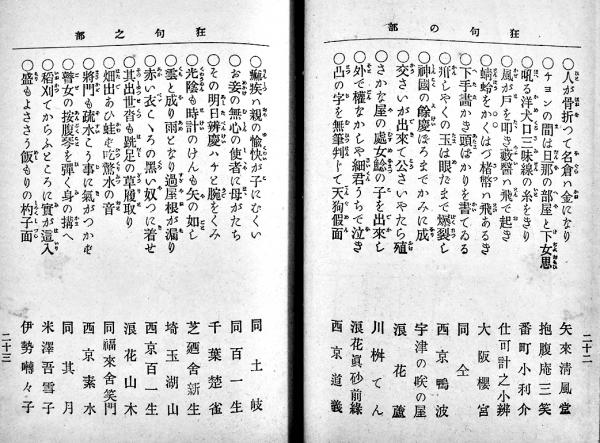 狂句の部
〇人が骨折つて名倉ハ金になり 矢來清風堂
〇チヨンの間は旦那の部屋と下女思 抱腹庵三笑
〇吼る洋犬口三味線の糸をきり 番町小利介
〇風が戸を叩き藪醫ハ飛で起き 仕可計之小辨
〇蜻蛉をかくはづ楮幣ハ飛あるき 大阪櫻宮
〇下手書かき頭ばかりを書てゐる 同仝
〇肝しやくの玉は眼たまで爆裂し 西京鴨波
〇神國の餘慶ほろまでかみに成 宇津の咲の屋
〇交さいが出來て公さいやたら殖 浪花蘆
〇さかな屋の處女鯰の子を出來し 川桝てん
〇外で權なかしや細君うちで泣き 浪花眞砂前緣
〇凸の字を無筆判じて天狗假面 西京道義
二十二
狂句之部
〇癇疾ハ親の愉快が子にむくい 同土岐
〇お妾の無心の使者に母がたち 同百一生
〇その明日辨慶ハチと腕をくみ 千葉楚雀
〇光陰も時計のけんも矢の如し 芝廼舍新生
〇雲と成り雨となり過屋根が漏り 埼玉湖山
〇赤い衣こゝろの黑い奴つに着せ 西京百一生
〇其出世沓も跣足の草履取り 浪花山木
〇畑出あひ蛙も吃驚水の音 同福來舍笑門
〇將門も疏水こう事に氣がつかず 西京素水
〇瞽女の按腹琴を彈く身の搆へ 同其月
〇稻刈てからふところに實が這入 米澤吾雪子
〇盛もよささう飯もりの杓子面 伊勢囀々子
二十三